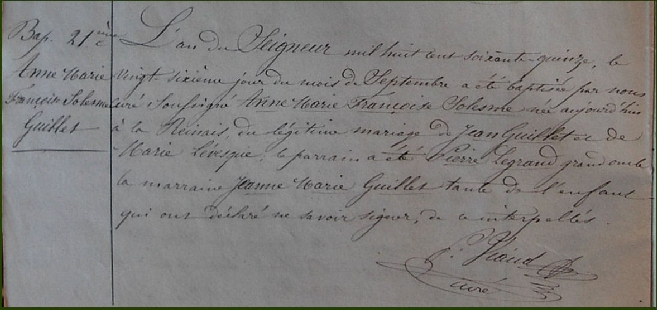 Bap. 21ième
Anne Marie
Françoise Solesme
Guillet
L'an du Seigneur mil huit cent soixante-quinze, le
vingt sixième jour du mois de Septembre a été baptisée par nous
curé soussigné Anne Marie Françoise Solesme née aujourd'hui
à la du légitime mariage de Jean Guillet et de
Marie Lévesque, le parrain a été Pierre Legrand grand oncle
la marraine Jeanne Marie Guillet tante de l'enfant
qui ont déclaré ne savoir signer, de ce interpellés.
Viaud
curé